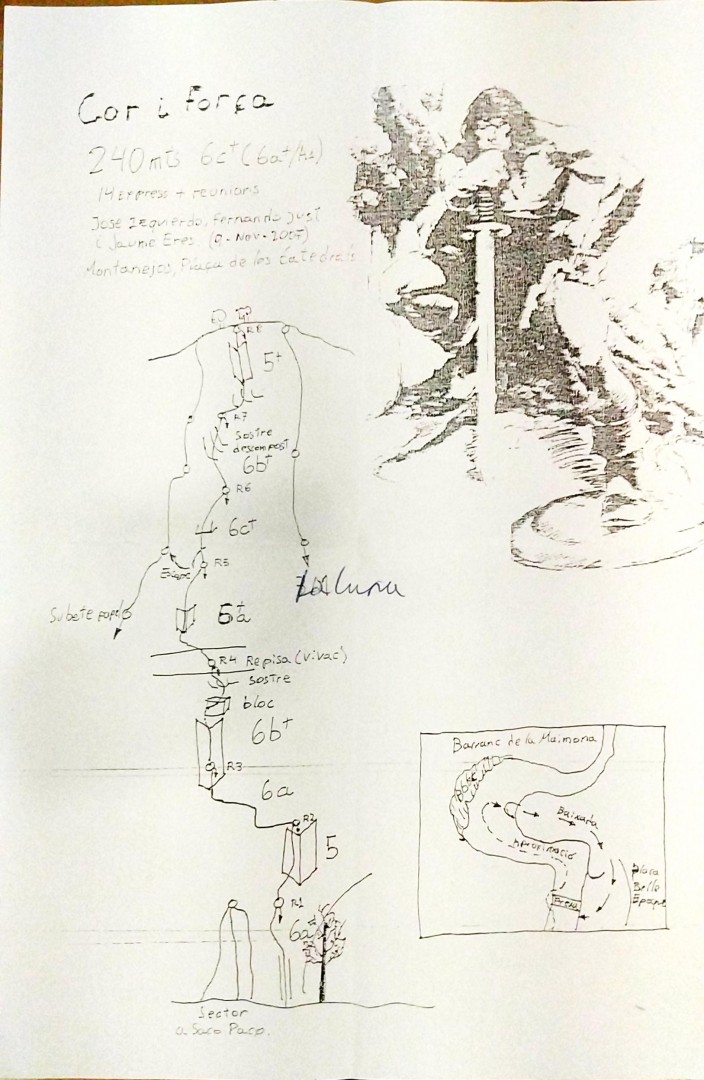 Cor i força
240 mts 6c+ (6a+/A1)
14 express + reunions
Jose Izquierdo, Fernando Just
i Jaume Eres. (9-Nov-2007)
Montanejos, Plaça de les Catedrals
R8
5+
R7
Sostre
descompost
6b+
R6
6c+
R5
Subete
6a+
R4 Repisa (vivac)
sostre
bloc
6b+
R3
6a
R2
5
R1
6a+
Sector
a Saco Paco.
Barranc de la Maimona
Baixada
Aproximació
Plaça
Belle
Epoque
Presa